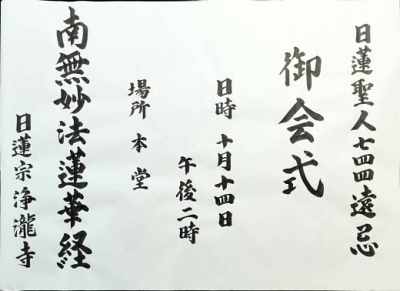 日蓮聖人七四四遠忌
御会式
日時 十月十四日
午後二時
場所 本堂
南無妙法蓮華経
日蓮宗浄瀧寺